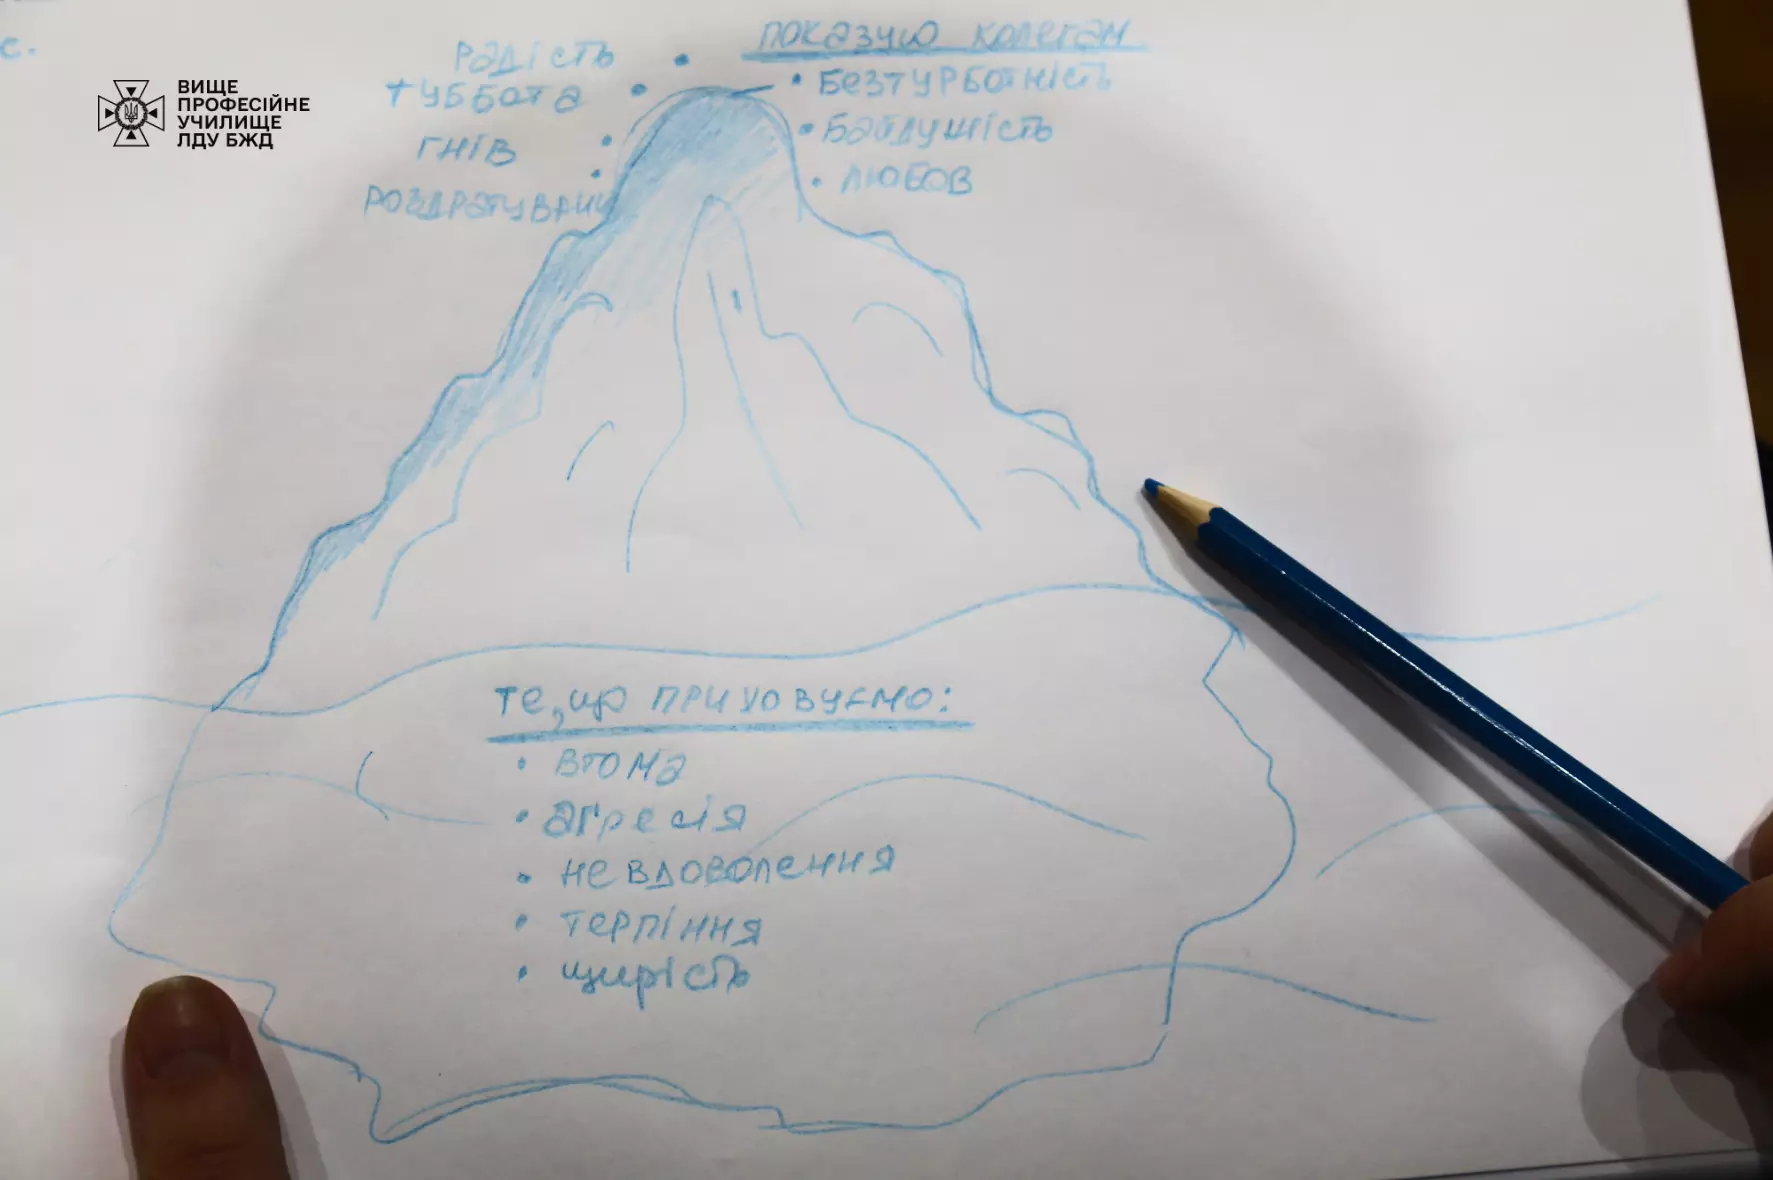 с.
ВИЩЕ
ПРОФЕСІЙНЕ
УЧИЛИЩЕ
ЛДУ БЖД
радість
туббота
гнів
роздратування
показую колегам
• безтурботність
• байдушість
• любов
те, що приховуємо:
• втома
• агресія
• невдоволення
• терпіння
• щирість